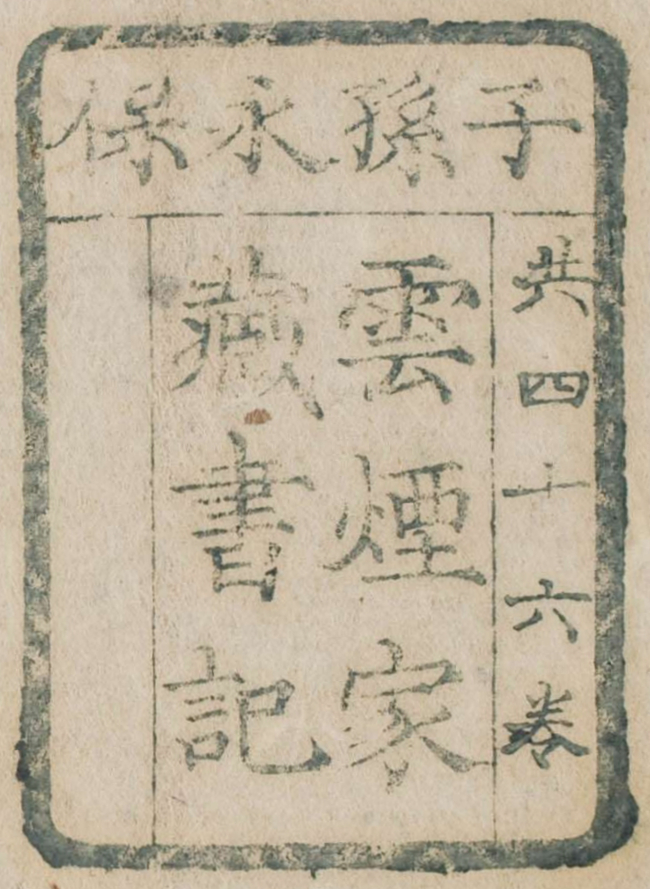 子孫永保
共四十六卷
雲煙家
藏書記